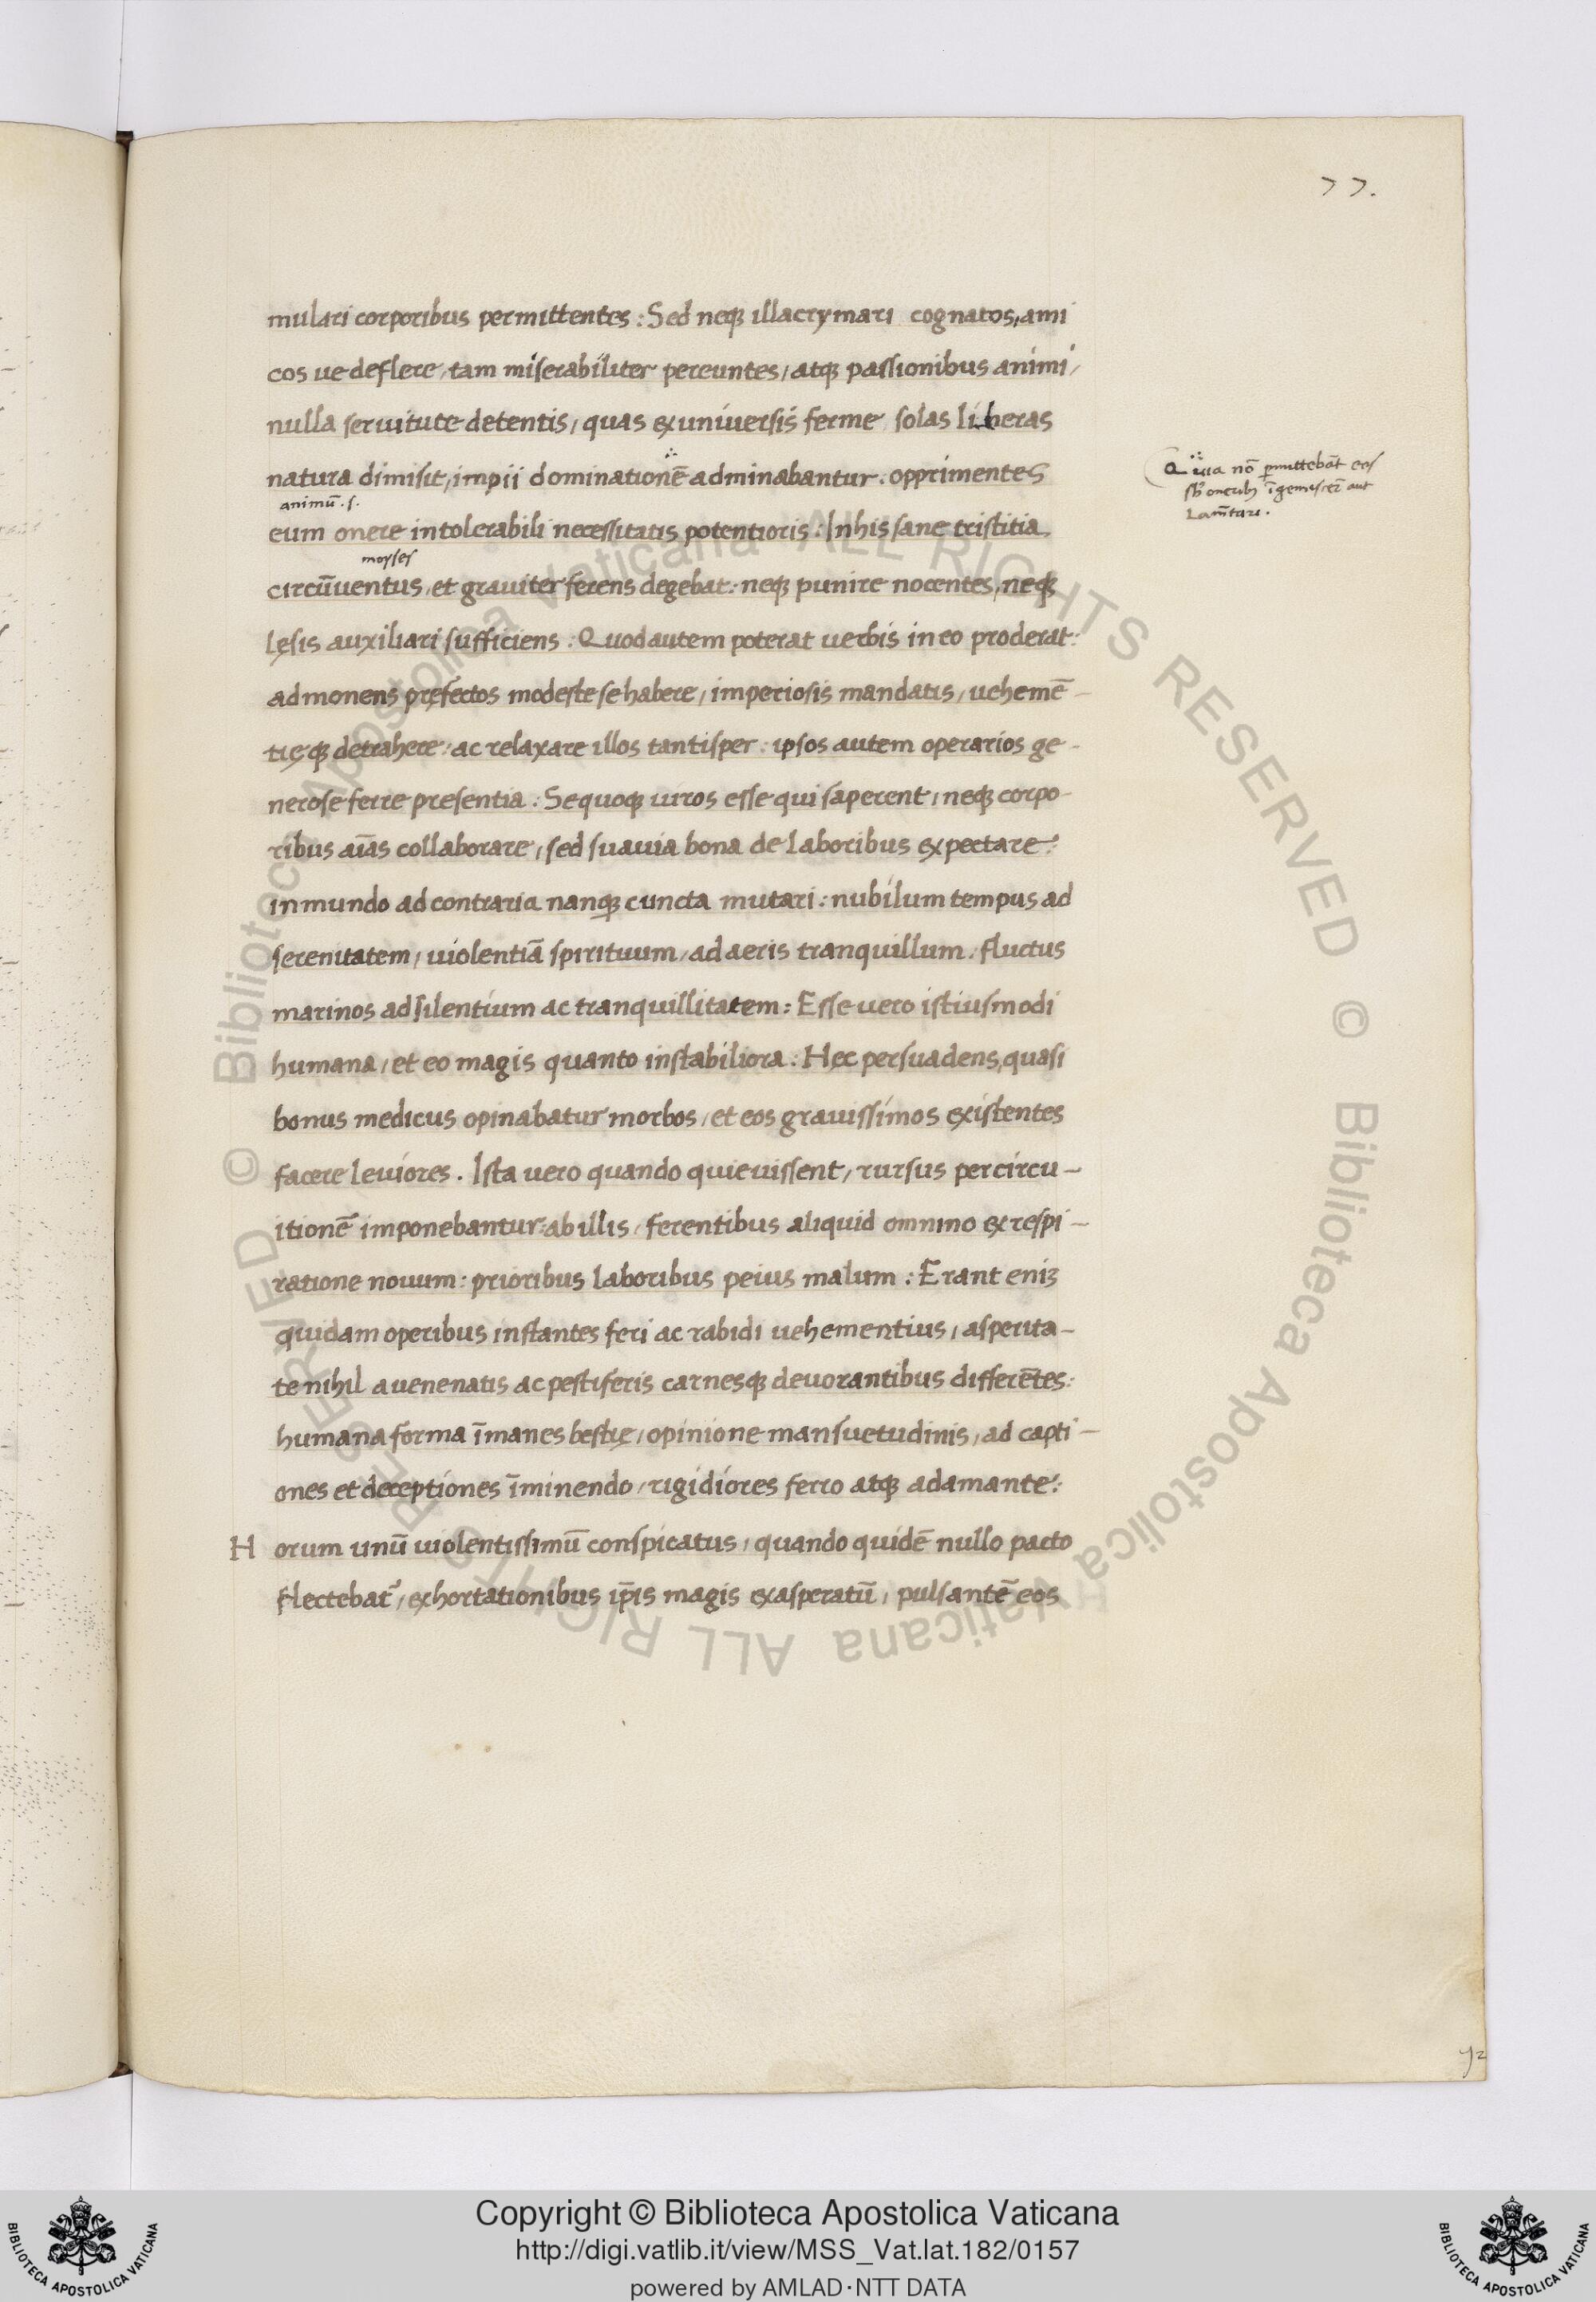 77.
mulari corporibus permittentes : Sed neqꝫ illacrymari cognatos, ami
cos ue deflere, tam miserabiliter pereuntes, atqꝫ passionibus animi,
nulla seruitute detentis, quas ex uniuersis ferme solas liberas
natura dimisit, impii dominationē adminabantur : opprimentes
Quia nō ꝑmittebāt eos
sb̄ oneribꝫ īgemiscer̄ aut
Lam̄tari.
animū .s.
eum onere intolerabili necessitatis potentioris : In his sane tristitia
moyses
circūuentus, et grauiter ferens degebat : neqꝫ punire nocentes, neqꝫ
lęsis auxiliari sufficiens : Quod autem poterat uerbis in eo proderat :
admonens pręfectos modeste se habere, imperiosis mandatis, uehemē-
tięqꝫ detrahere, ac relaxare illos tantisper : ipsos autem operarios ge-
nerose ferre presentia : Se quoqꝫ uiros esse qui saperent, neqꝫ corpo-
ribus aīas collaborare, sed suauia bona de laboribus expectare :
in mundo ad contraria nanqꝫ cuncta mutari : nubilum tempus ad
serenitatem, uiolentiā spirituum, ad aeris tranquillum, fluctus
marinos ad silentium ac tranquillitatem : Esse uero istiusmodi
humana, et eo magis quanto instabiliora : Hęc persuadens, quasi
bonus medicus opinabatur morbos, et eos grauissimos existentes
facere leuiores . Ista uero quando quieuissent, rursus per circu-
itionē imponebantur ab illis, ferentibus aliquid omnino ex respi-
ratione nouum : prioribus laboribus peius malum : Erant eniꝫ
quidam operibus instantes feri ac rabidi uehementius, asperita-
te nihil a uenenatis ac pestiferis carnesqꝫ deuorantibus differētes :
humana forma īmanes bestię, opinione mansuetudinis, ad capti-
ones et deceptiones īminendo, rigidiores ferro atqꝫ adamante :
Horum unū uiolentissimū conspicatus, quando quidē nullo pacto
flectebat᷑, exhortationibus ip̄is magis exasperatū, pulsantē eos
72
© Biblioteca Apostolica Vaticana ALL RIGHTS RESERVED © Biblioteca Apostolica Vaticana ALL RIGHTS RESERVED
BIBLIOTECA APOSTOLICA VATICANA
Copyright © Biblioteca Apostolica Vaticana
http://digi.vatlib.it/view/MSS_Vat.lat.182/0157
powered by AMLAD·NTT DATA
BIBLIOTECA APOSTOLICA VATICANA